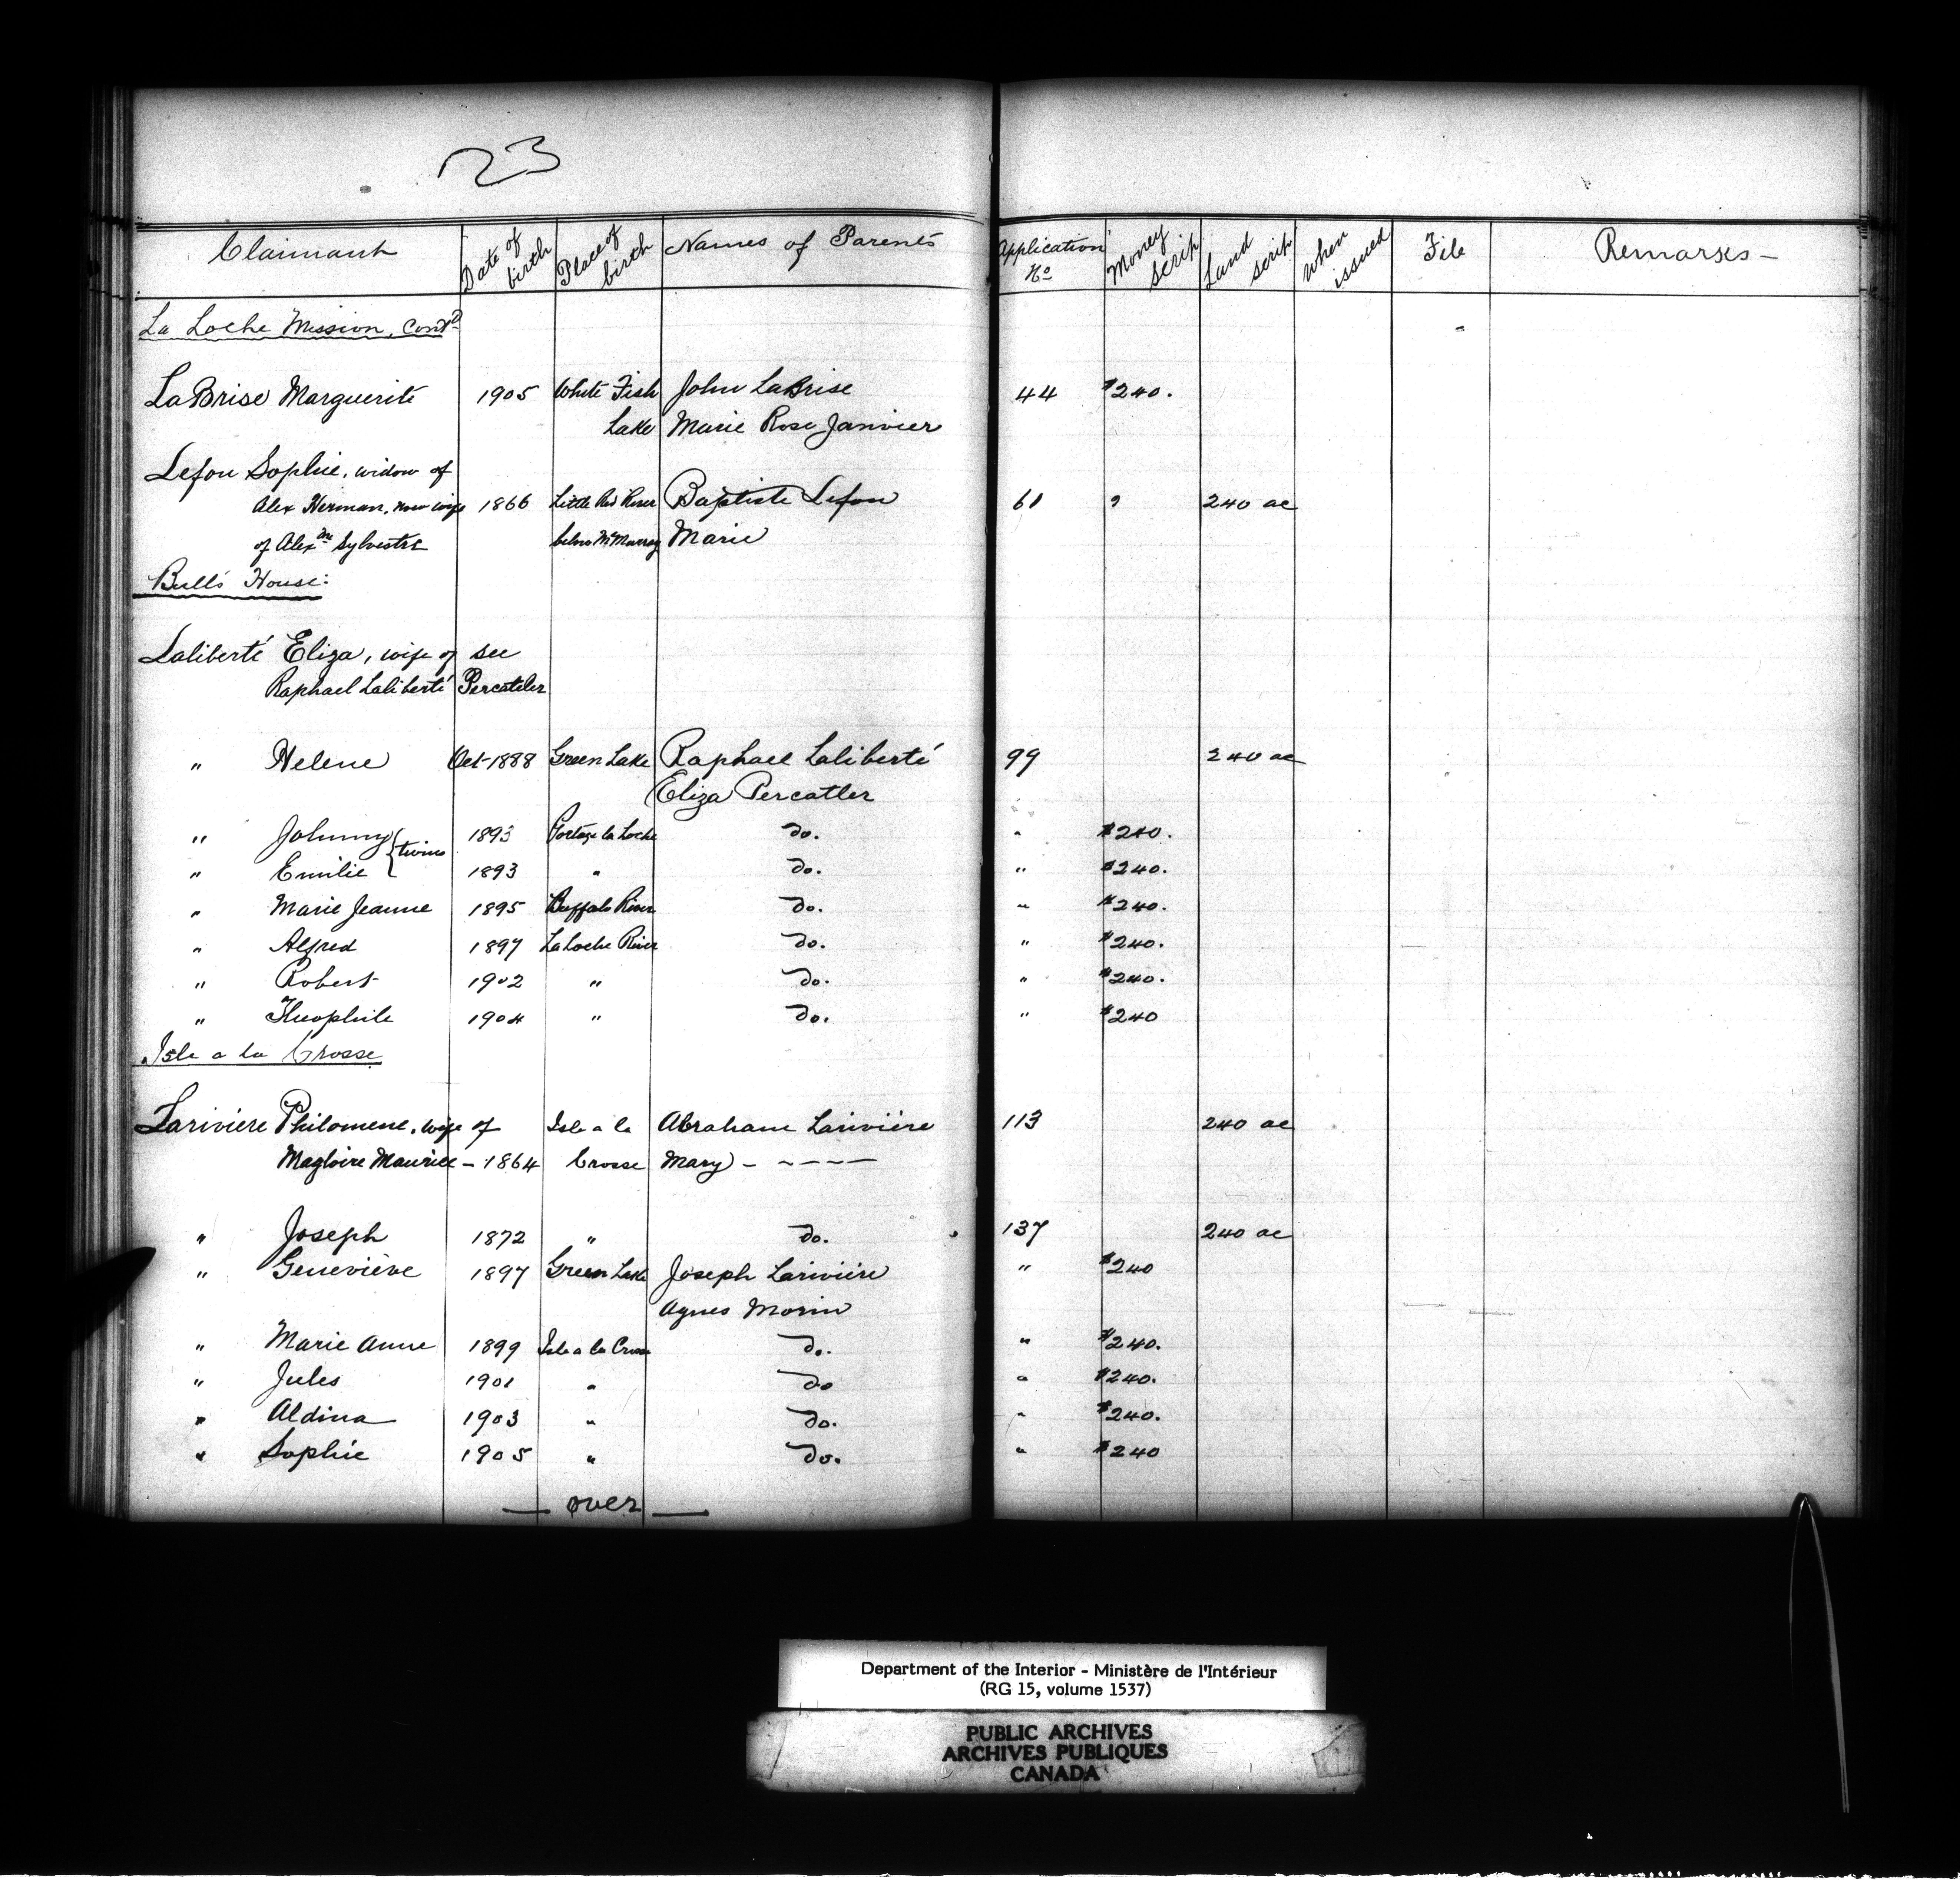 23
Claimant Date of birth Place of birth Names of Parents Application No Money scrip Land scrip When issued File Remarks -
La Loche Mission, Contd
LaBrise Marguerite 1905 White Fish John LaBrise 44 $240.
Lake Marie Rose Janvier
Lefou Sophie, widow of
Alex Herman, now wife 1866 Little Red River Baptiste Lefou 61 ? 240 ac
of Alexdre Sylvestre below McMurray Marie
Bull's House:
Laliberté Eliza, wife of see
Raphael Laliberté Percatler
" Helene Oct-1888 Green Lake Raphael Laliberté 99 240 ac
Eliza Percatler
" Johnny { twins 1893 Portage la Loche do. " $240.
" Emilie 1893 " do. " $240.
" Marie Jeanne 1895 Buffalo River do. " $240.
" Alfred 1897 La Loche River do. " $240.
" Robert 1902 " do. " $240.
" Theophile 1904 " do. " $240
Isle a la Crosse
Lariviere Philomene, wife of Isle a la Abraham Larivière 113 240 ac
Magloire Maurice - 1864 Crosse Mary - - - - -
" Joseph 1872 " do. 137 240 ac
" Geneviève 1897 Green Lake Joseph Larivière " $240
Agnes Morin
" Marie Anne 1899 Isle a la Crosse do. " $240.
" Jules 1901 " do " $240.
" Aldina 1903 " do. " $240.
" Sophie 1905 " do. " $240
— over —
Department of the Interior - Ministère de l'Intérieur
(RG 15, volume 1537)
PUBLIC ARCHIVES
ARCHIVES PUBLIQUES
CANADA